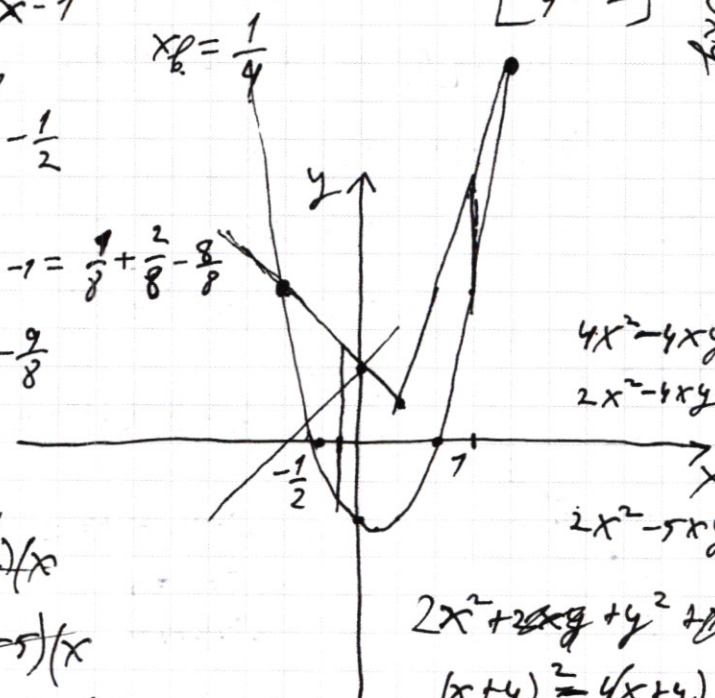 x-1
x_b. = 1/4
-1/2
y
-1 = 1/8 + 2/8 - 8/8
-9/8
4x²-4xy
2x²-4xy
-1/2
1
x
2x²-5xy
)(x
2x²+2xy+y²+
-5)(x
(x+y)²=4(x+y)